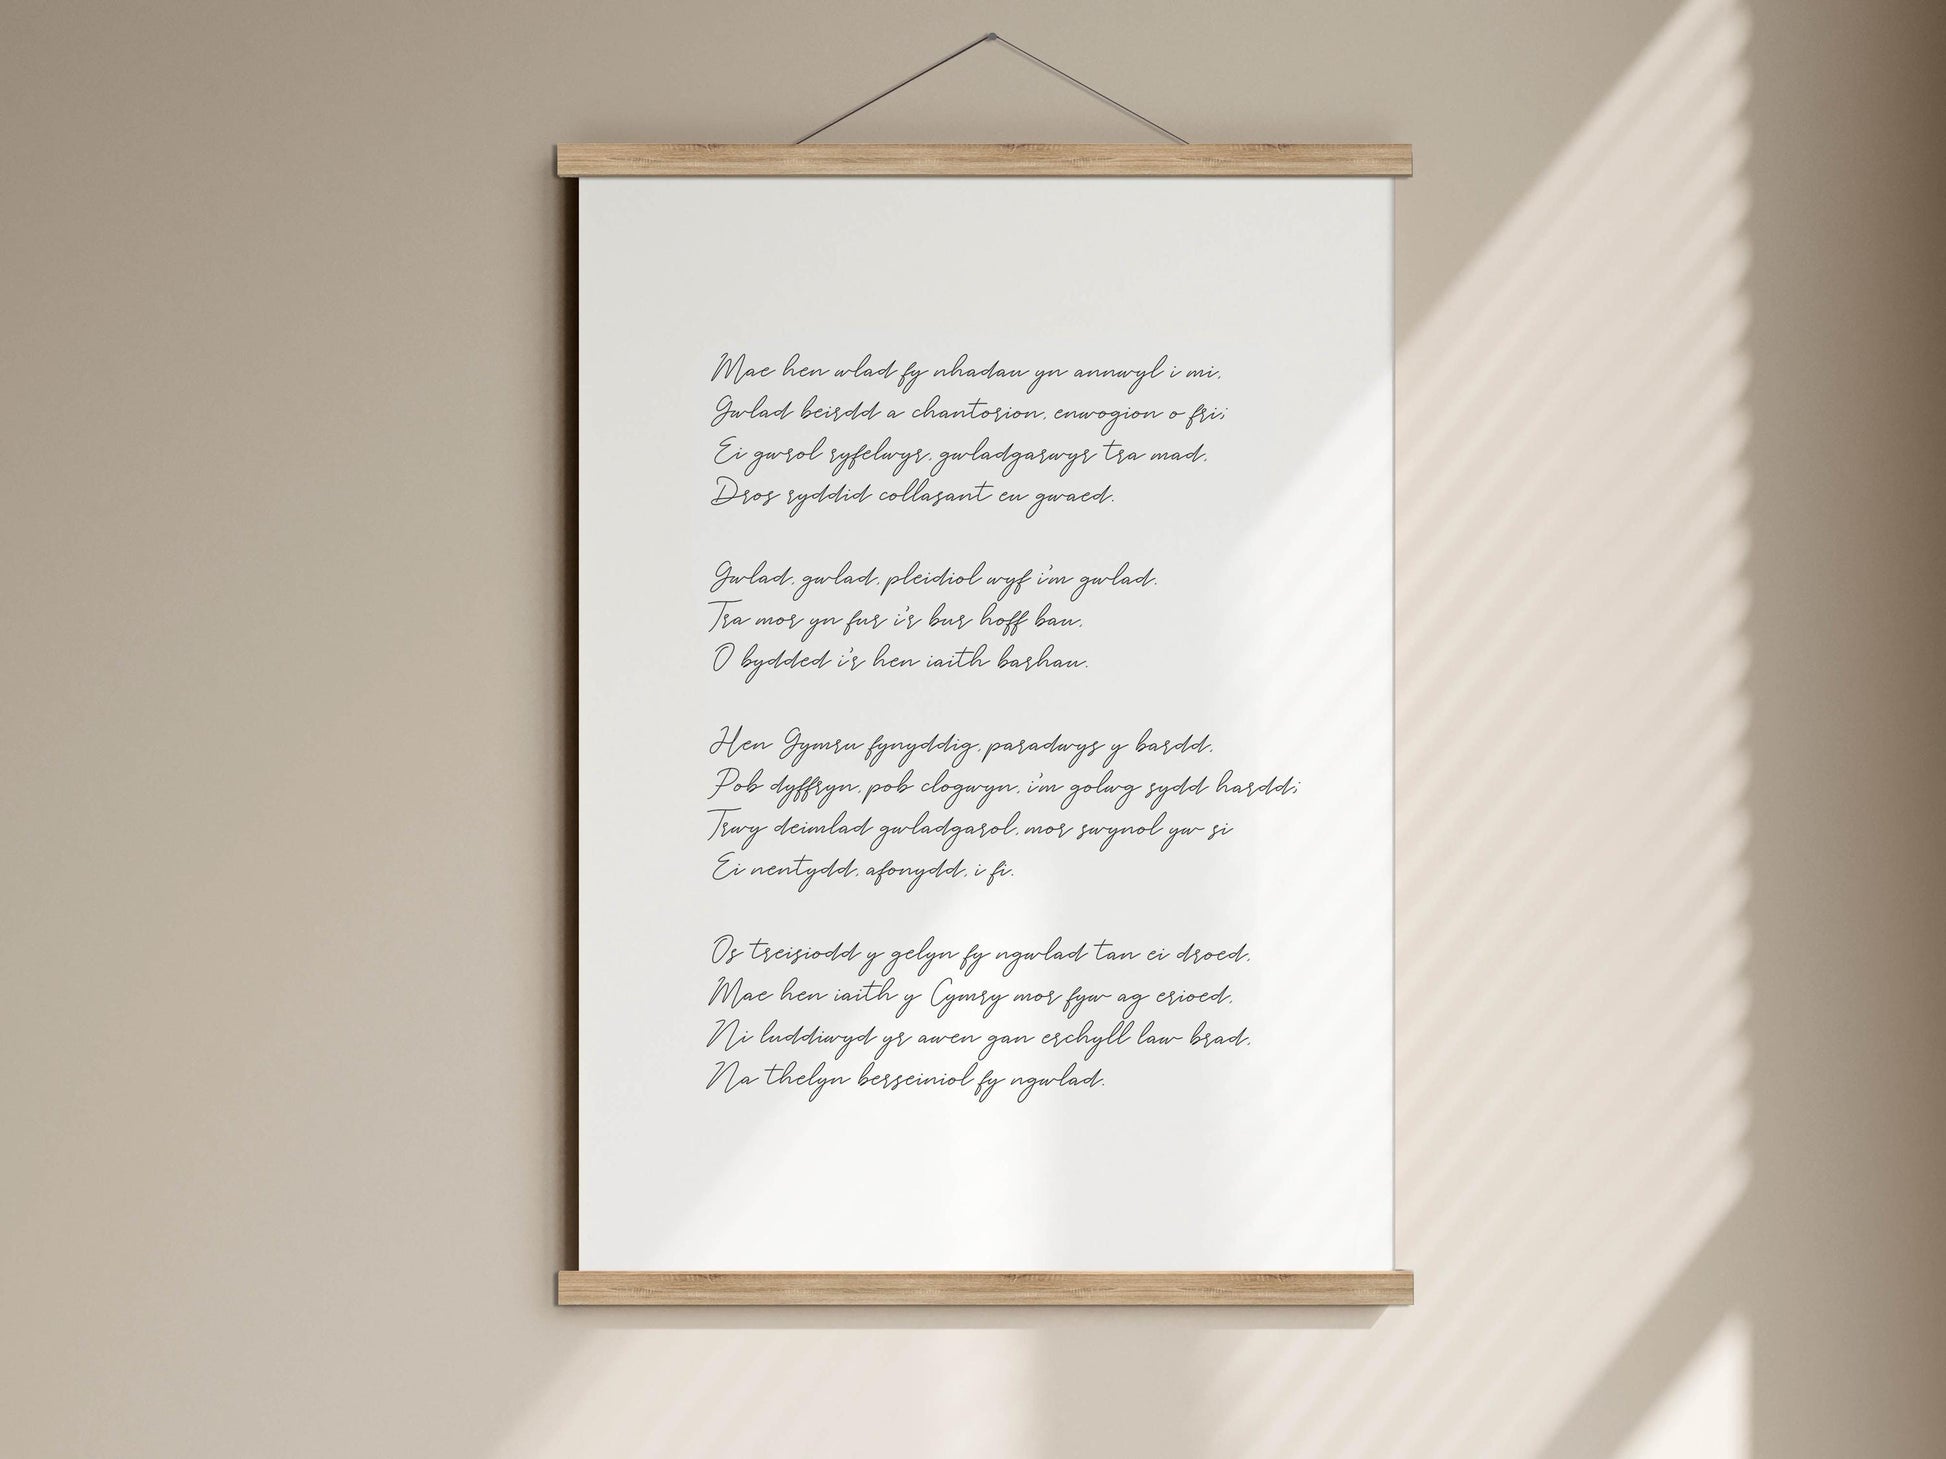 Mae hen wlad fy nhadau yn annwyl i mi,
Gwlad beirdd a chantorion, enwogion o fri;
Ei gwrol ryfelwyr, gwladgarwyr tra mad,
Dros ryddid collasant eu gwaed.
Gwlad, gwlad, pleidiol wyf i'm gwlad.
Tra mor yn fur i'r bur hoff bau,
O bydded i'r hen iaith barhau.
Hen Gymru fynyddig, paradwys y bardd,
Pob dyffryn, pob clogwyn, i'm golwg sydd hardd;
Trwy deimlad gwladgarol, mor swynol yw si
Ei nentydd, afonydd, i fi.
Os treisiodd y gelyn fy ngwlad tan ei droed,
Mae hen iaith y Cymry mor fyw ag erioed,
Ni luddiwyd yr awen gan erchyll law brad,
Na thelyn berseiniol fy ngwlad.